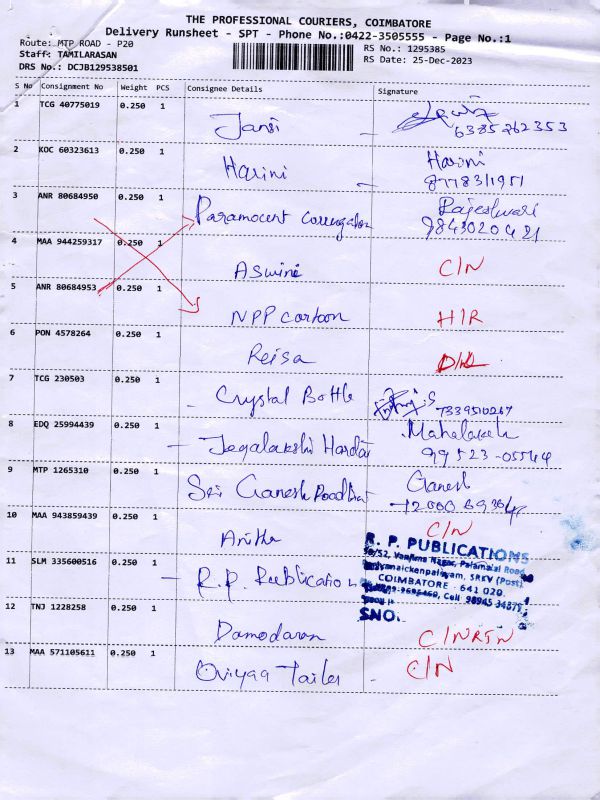 THE PROFESSIONAL COURIERS, COIMBATORE
Delivery Runsheet - SPT - Phone No.:0422-3505555 - Page No.:1
Route: MTP ROAD - P20
RS No.: 1295385
Staff: TAMILARASAN
RS Date: 25-Dec-2023
DRS No.: DCJB129538501
S No Consignment No Weight PCS Consignee Details Signature
1 TCG 40775019 0.250 1
Jansi
6385262353
2 KOC 60323613 0.250 1
Harini Harini
8778311951
3 ANR 80684950 0.250 1
Paramount Rajeshwari
9843020421
4 MAA 944259317 0.250 1
Aswini C/N
5 ANR 80684953 0.250 1
NPP cartoon H/R
6 PON 4578264 0.250 1
Reisa
7 TCG 230503 0.250 1
Crystal Bottle
8 EDQ 25994439 0.250 1
99523-05544
9 MTP 1265310 0.250 1
Sri Ganesh Ganesh
10 MAA 943859439 0.250 1
C/N
11 SLM 335600516 0.250 1
R.P. Publication
R. P. PUBLICATIONS
Nagar, Palamalai Road
SRKV (Post)
COIMBATORE - 641 020.
Cell 98945 34875
SNO.
12 TNJ 1228258 0.250 1
Damodaran C/N RTN
13 MAA 571105611 0.250 1
Oviyaa Tailer C/N